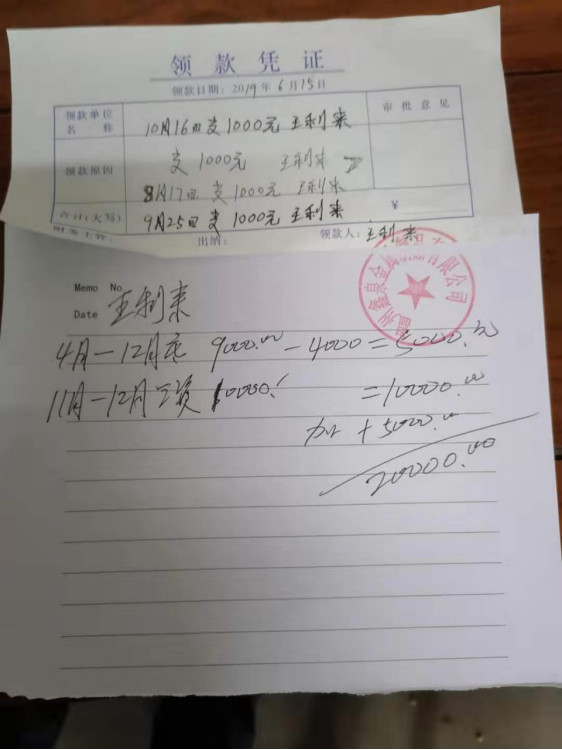 领款凭证
领款日期：2019年6月15日
领款单位名称 10月16日支1000元 王利来 审批意见
支1000元 王利来
领款原因
8月17日支1000元 王利来
合计(大写) 9月25日支1000元 王利来 ¥
财务主管： 出纳： 领款人：王利来
Memo No.
Date 王利来
4月—12月底 9000.00 — 4000 = 5000.元
11月—12月工资 10000. = 10000.00
加 + 5000.00
20000.00
州鑫泉金 有限公司